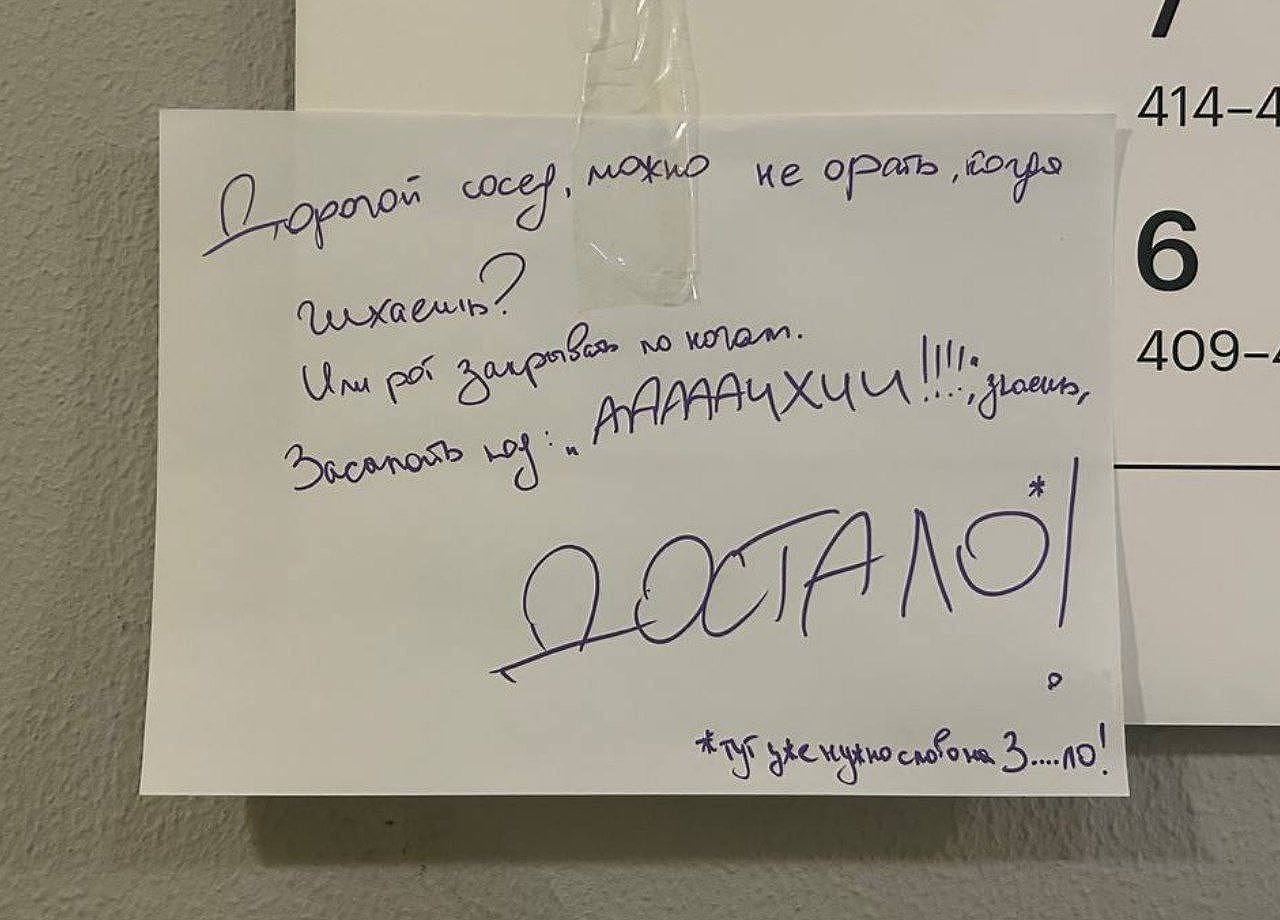 7
414–4
6
409–4
Дорогой сосед, можно не орать, когда
чихаешь?
Или рот закрывать по ночам.
Засыпать под: „ААААААЧХИИ!!!!!", знаешь,
ДОСТАЛО*!
*тут уже нужно слово на З....ЛО!